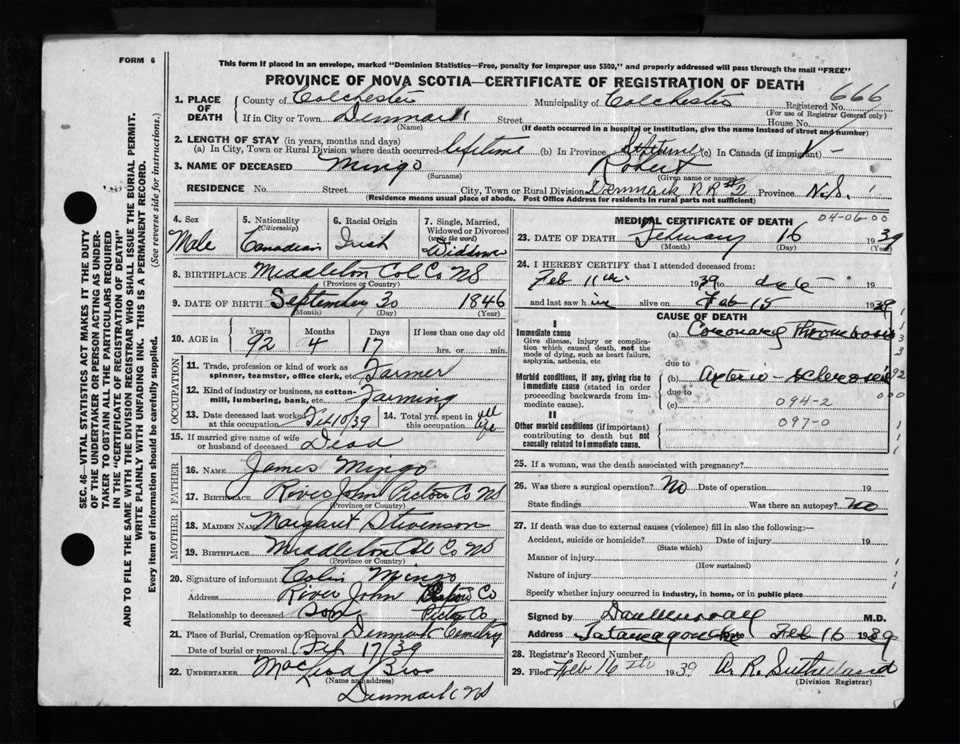 FORM 6
This form if placed in an envelope, marked "Dominion Statistics—Free, penalty for improper use $300," and properly addressed will pass through the mail "FREE"
PROVINCE OF NOVA SCOTIA—CERTIFICATE OF REGISTRATION OF DEATH
SEC. 46—VITAL STATISTICS ACT MAKES IT THE DUTY
OF THE UNDERTAKER OR PERSON ACTING AS UNDER-
TAKER TO OBTAIN ALL THE PARTICULARS REQUIRED
IN THE "CERTIFICATE OF REGISTRATION OF DEATH"
AND TO FILE THE SAME WITH THE DIVISION REGISTRAR WHO SHALL ISSUE THE BURIAL PERMIT.
WRITE PLAINLY WITH UNFADING INK. THIS IS A PERMANENT RECORD.
Every item of information should be carefully supplied. (See reverse side for instructions.)
1. PLACE OF DEATH
County of Colchester Municipality of Colchester Registered No. 666
(For use of Registrar General only)
If in City or Town Denmark Street House No.
(Name) (If death occurred in a hospital or institution, give the name instead of street and number)
2. LENGTH OF STAY (in years, months and days)
(a) In City, Town or Rural Division where death occurred lifetime (b) In Province lifetime (c) In Canada (if immigrant)
3. NAME OF DECEASED Mingo Robert
(Surname) (Given or names)
RESIDENCE No. Street City, Town or Rural Division Denmark RR #2 Province N.S.
(Residence means usual place of abode. Post Office Address for residents in rural parts not sufficient)
4. Sex
Male
5. Nationality
(Citizenship)
Canadian
6. Racial Origin
Irish
7. Single, Married, Widowed or Divorced
(write the word)
Widower
8. BIRTHPLACE Middleton Col Co NS
(Province or Country)
9. DATE OF BIRTH September 30 1846
(Month) (Day) (Year)
10. AGE in Years Months Days If less than one day
92 4 17 hrs. or min.
OCCUPATION
11. Trade, profession or kind of work as
spinner, teamster, office clerk, etc. Farmer
12. Kind of industry or business, as cotton-
mill, lumbering, bank, etc. Farming
13. Date deceased last worked
at this occupation Feb 10/39
14. Total yrs. spent in
this occupation all life
15. If married give name of wife
or husband of deceased Dead
FATHER
16. NAME James Mingo
17. BIRTHPLACE River John Pictou Co NS
(Province or Country)
MOTHER
18. MAIDEN NAME Margaret Stevenson
19. BIRTHPLACE Middleton Col Co NS
(Province or Country)
20. Signature of informant Colin Mingo
Address River John Pictou Co
Relationship to deceased Son Pictou Co
21. Place of Burial, Cremation or Removal Denmark Cemetery
Date of burial or removal Feb 17/39
22. UNDERTAKER MacLeod Bros
(Name and address)
Denmark NS
MEDICAL CERTIFICATE OF DEATH
04-06-00
23. DATE OF DEATH February 16 1939
(Month) (Day) (Year)
24. I HEREBY CERTIFY that I attended deceased from:
Feb 11th 1939 to date 19
and last saw him alive on Feb 15 1939
CAUSE OF DEATH
I
Immediate cause
Give disease, injury or complica-
tion which caused death, not the
mode of dying, such as heart failure,
asphyxia, asthenia, etc
(a) Coronary Thrombosis
due to
Morbid conditions, if any, giving rise to
immediate cause (stated in order
proceeding backwards from im-
mediate cause).
(b) Arterio-sclerosis
due to
(c) 094-2
II
097-0
Other morbid conditions (if important)
contributing to death but not
causally related to immediate cause.
25. If a woman, was the death associated with pregnancy?
26. Was there a surgical operation? No Date of operation 19
State findings Was there an autopsy? No
27. If death was due to external causes (violence) fill in also the following:—
Accident, suicide or homicide? Date of injury 19
(State which)
Manner of injury
(How sustained)
Nature of injury
Specify whether injury occurred in industry, in home, or in public place
Signed by M.D.
Address Tatamagouche Feb 16 1939
28. Registrar's Record Number
29. Filed Feb 16th 1939 A. R. Sutherland
(Division Registrar)